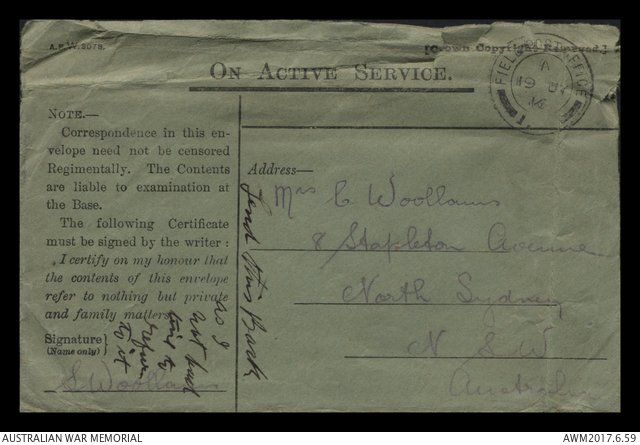 A.F.W.3078.
[Crown Copyright Reserved.]
FIELD POST OFFICE
ON ACTIVE SERVICE.
NOTE.—
Correspondence in this en-
velope need not be censored
Regimentally. The Contents
are liable to examination at
the Base.
The following Certificate
must be signed by the writer:
I certify on my honour that
the contents of this envelope
refer to nothing but private
and family matters.
Signature
(Name only)
S Woollams
as I
not had
time to
return
to it
send this Back
Address—
Mrs C Woollams
8 Stapleton Avenue
North Sydney
N S W
Australia
AUSTRALIAN WAR MEMORIAL
AWM2017.6.59